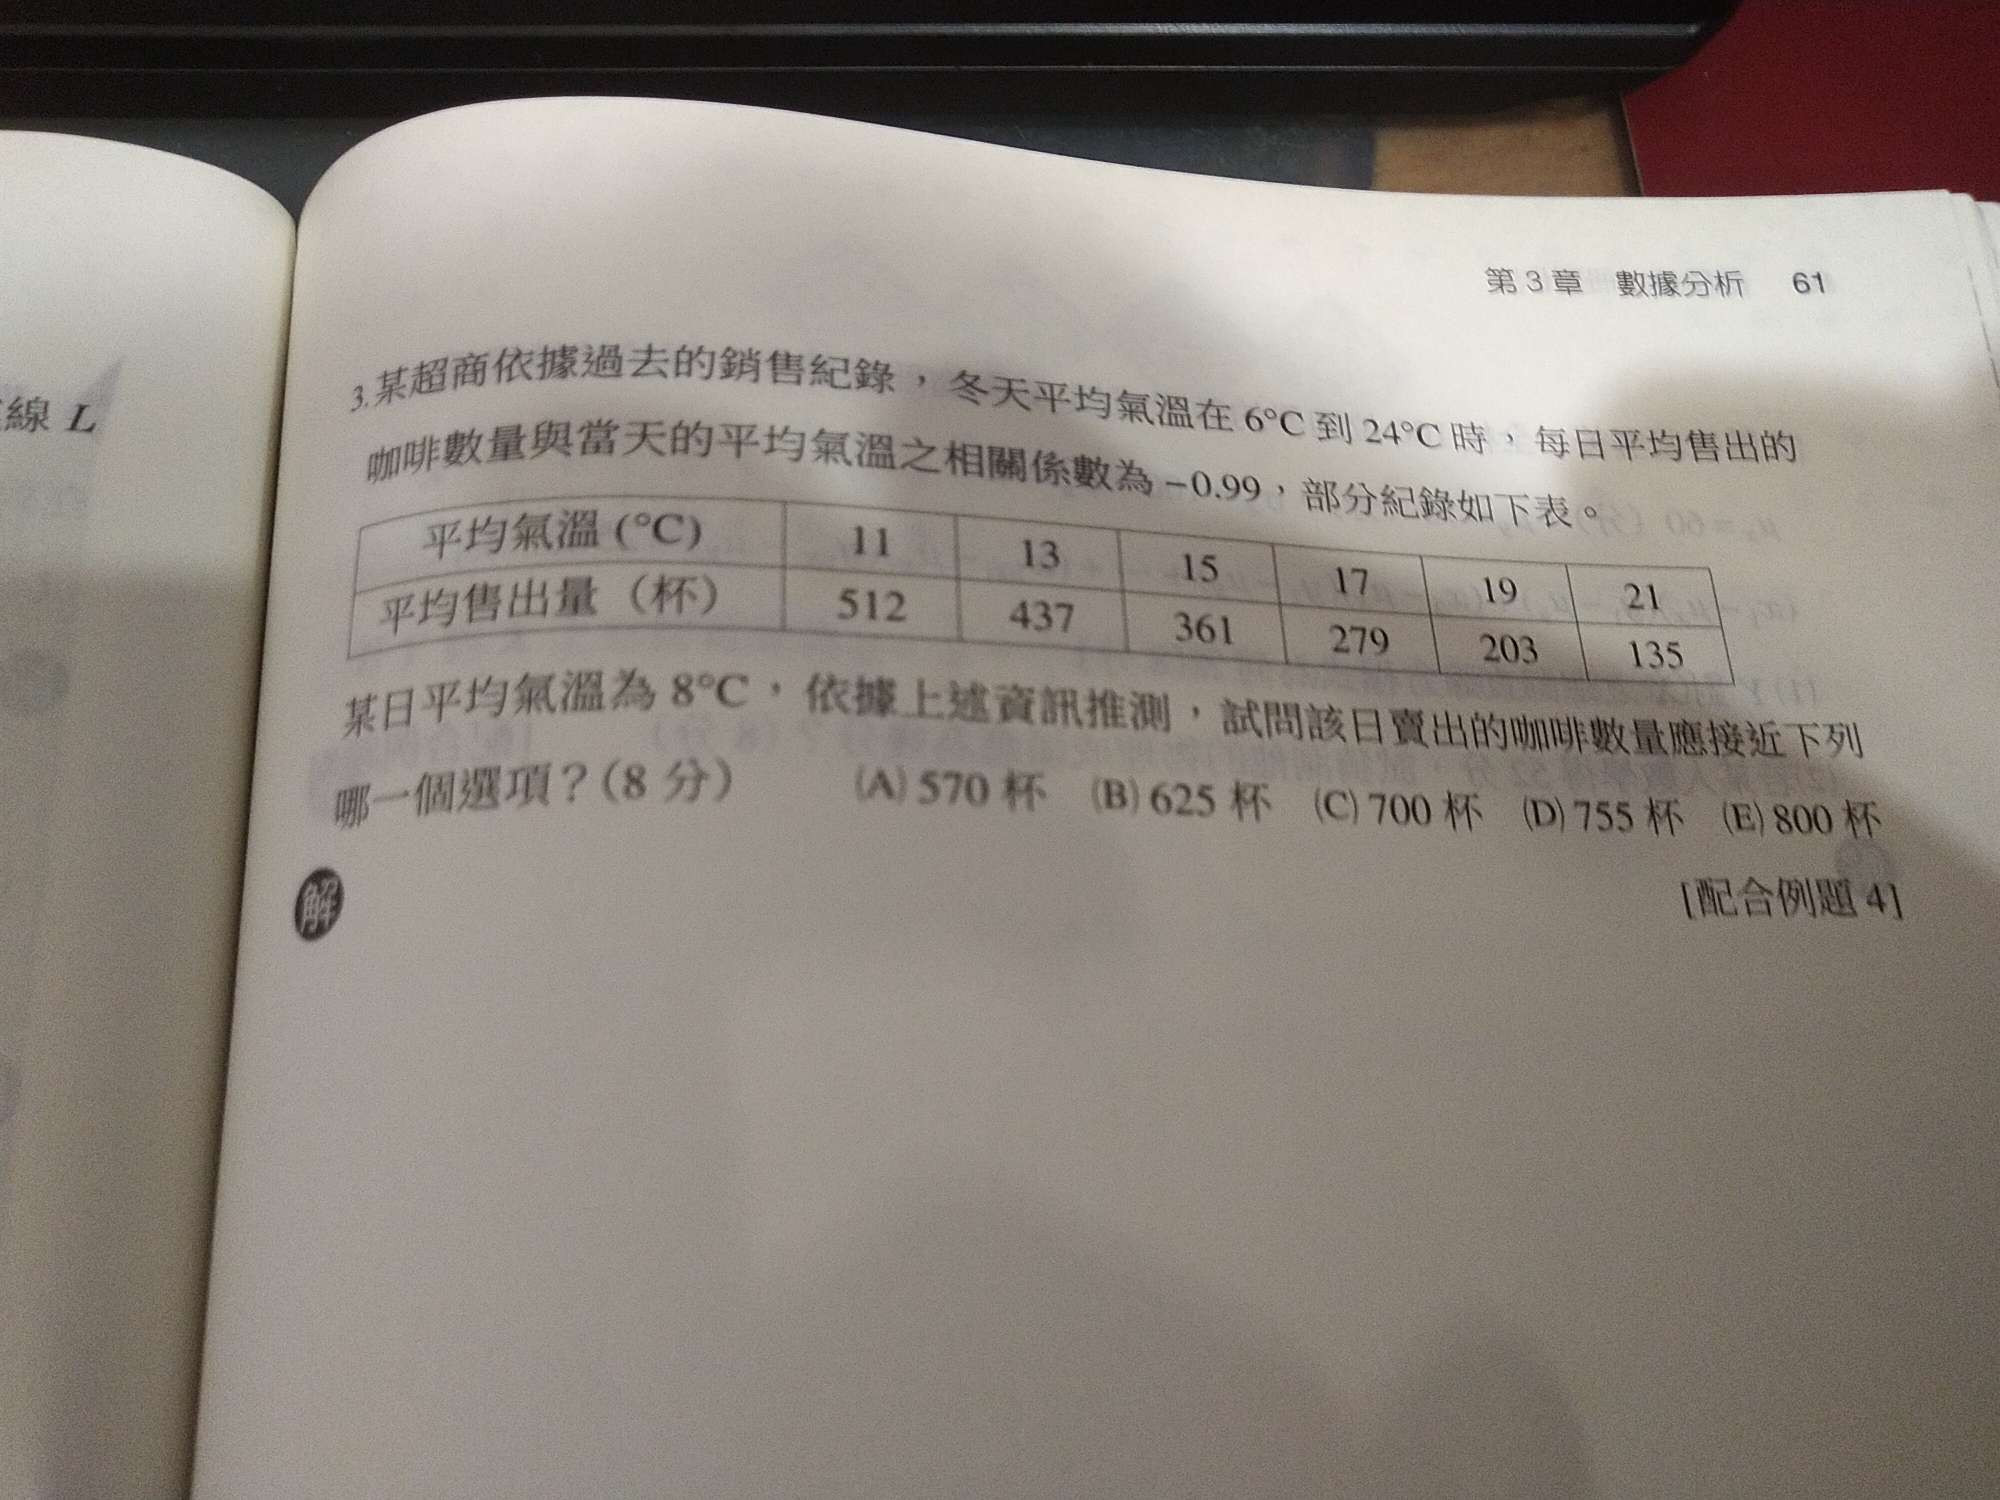 線 L
第 3 章 數據分析 61
3.某超商依據過去的銷售紀錄，冬天平均氣溫在 6°C 到 24°C 時，每日平均售出的
咖啡數量與當天的平均氣溫之相關係數為 −0.99，部分紀錄如下表。
平均氣溫 (°C) 11 13 15 17 19 21
平均售出量（杯） 512 437 361 279 203 135
某日平均氣溫為 8°C，依據上述資訊推測，試問該日賣出的咖啡數量應接近下列
哪一個選項？(8 分） (A) 570 杯 (B) 625 杯 (C) 700 杯 (D) 755 杯 (E) 800 杯
[配合例題 4]
解